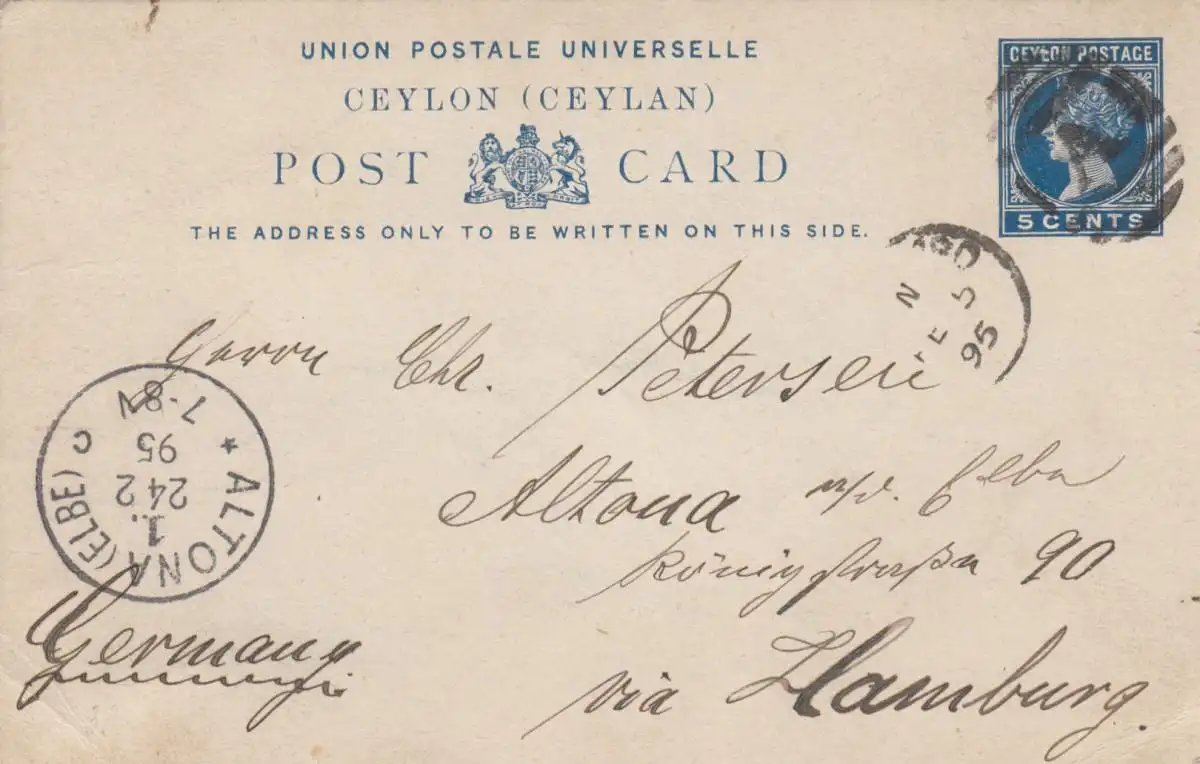 UNION POSTALE UNIVERSELLE
CEYLON (CEYLAN)
POST CARD
THE ADDRESS ONLY TO BE WRITTEN ON THIS SIDE.
CEYLON POSTAGE
5 CENTS
N
5
95
Herrn Chr. Petersen
Altona a/d. Elbe
Königstraße 90
via Hamburg.
Germany
ALTONA (ELBE)
1.
24 2
95
7-8N
* C